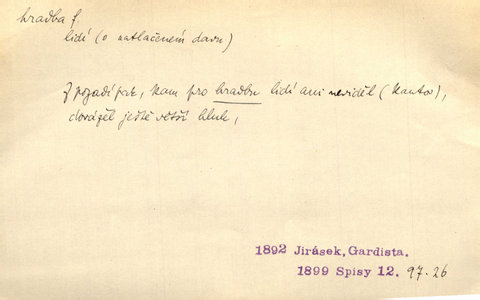 hradba f.
lidí (o natlačeném davu)
Z pozadí pak, kam pro hradbu lidí ani neviděl (kantor),
dorážel ještě větší hluk,
1892 Jirásek, Gardista.
1899 Spisy 12. 97.26